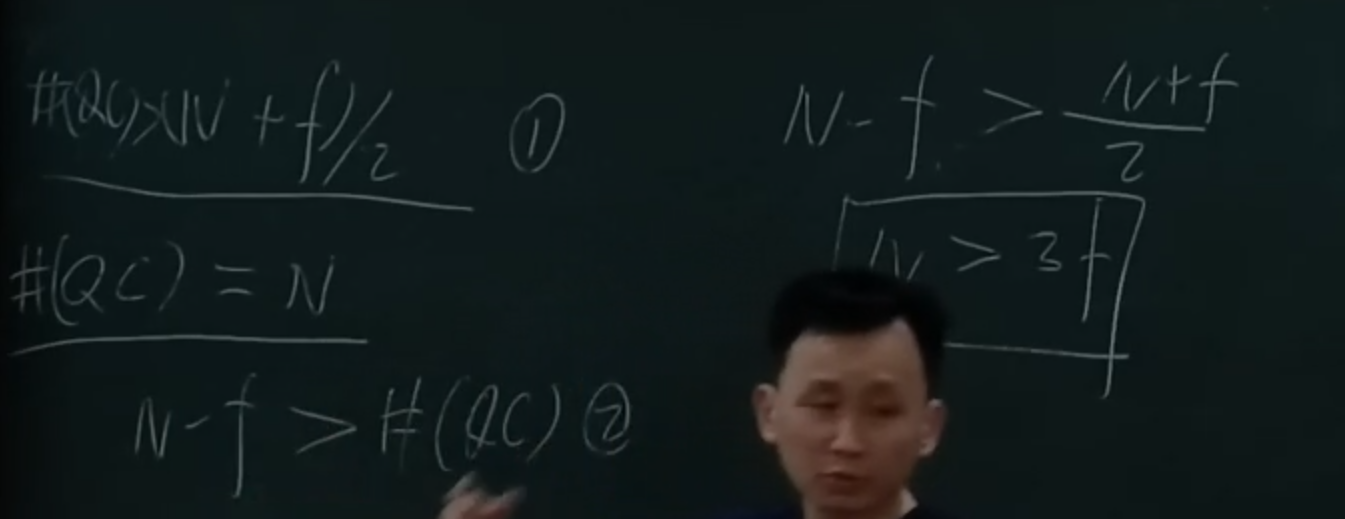 #(QC)>(N+f)/2 ①
#(QC) = N
N-f > #(QC) ②
N-f > N+f/2
N > 3f